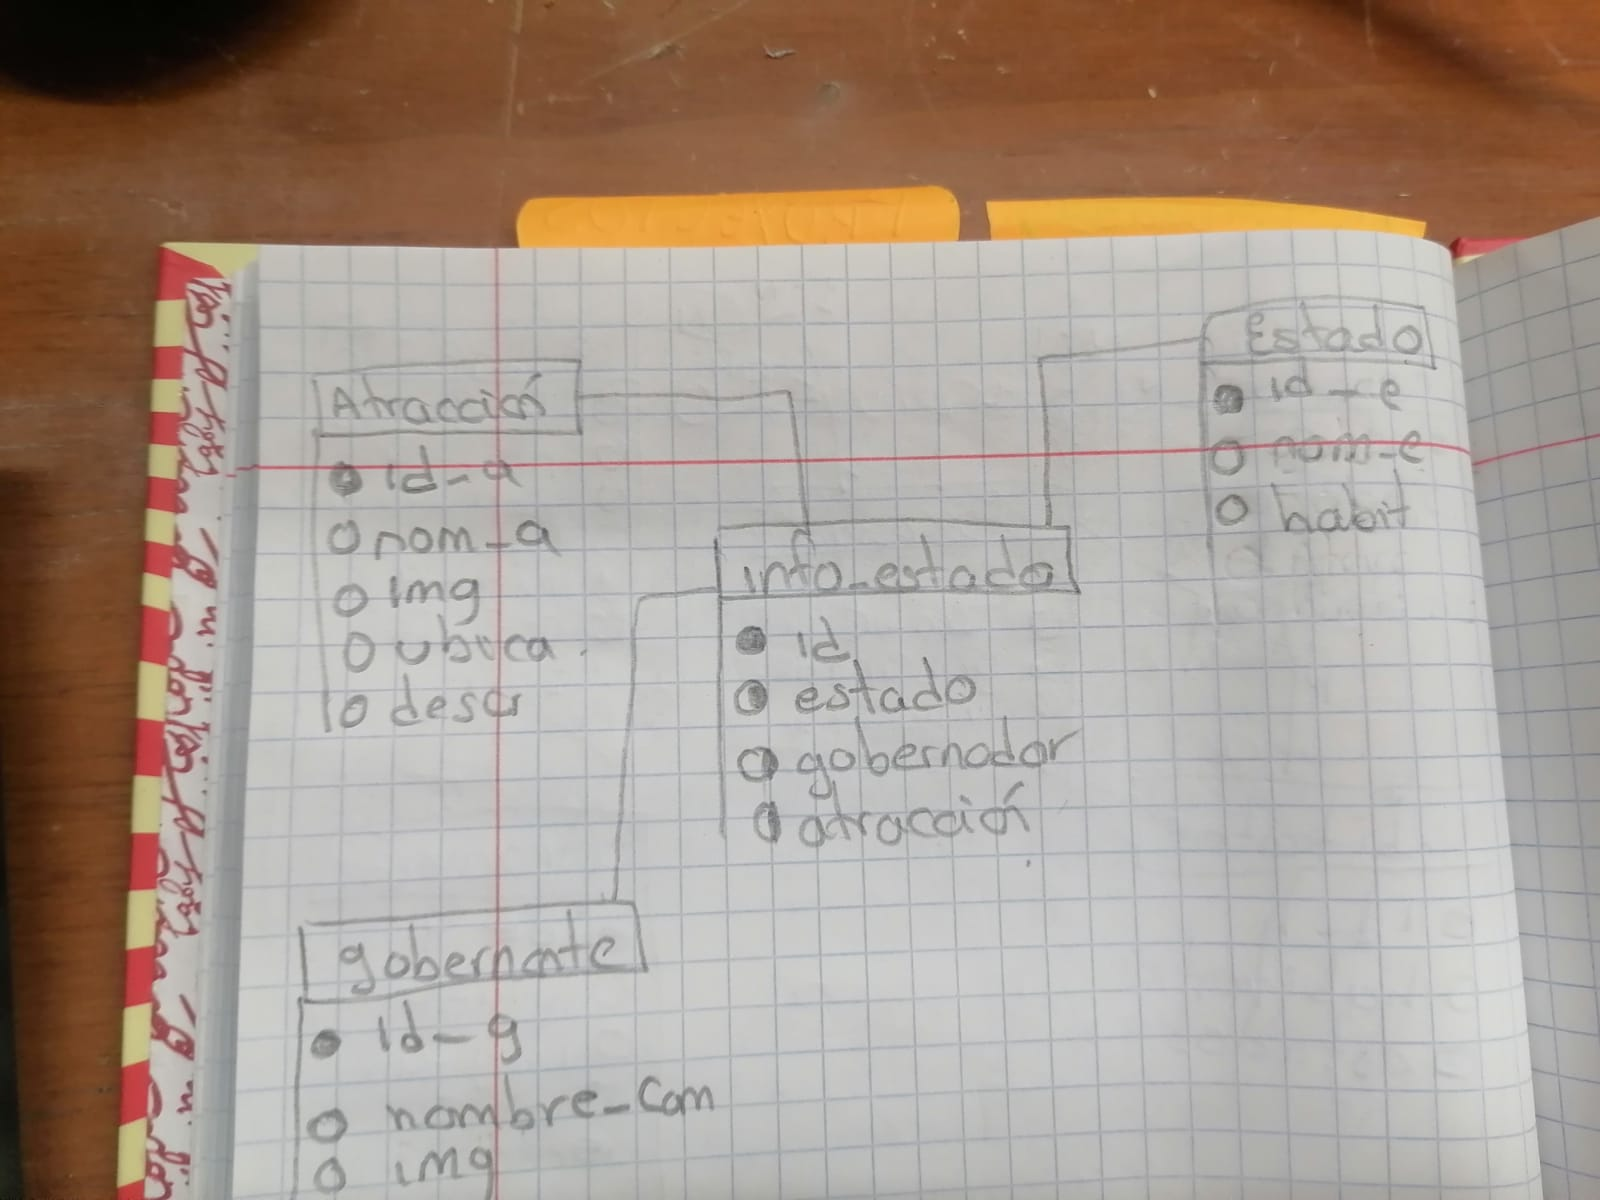 Atracción
id-a
nom-a
img
ubica
descr
Estado
id-e
nom-e
habit
info-estado
id
estado
gobernador
atracción
gobernante
id-g
nombre-com
img